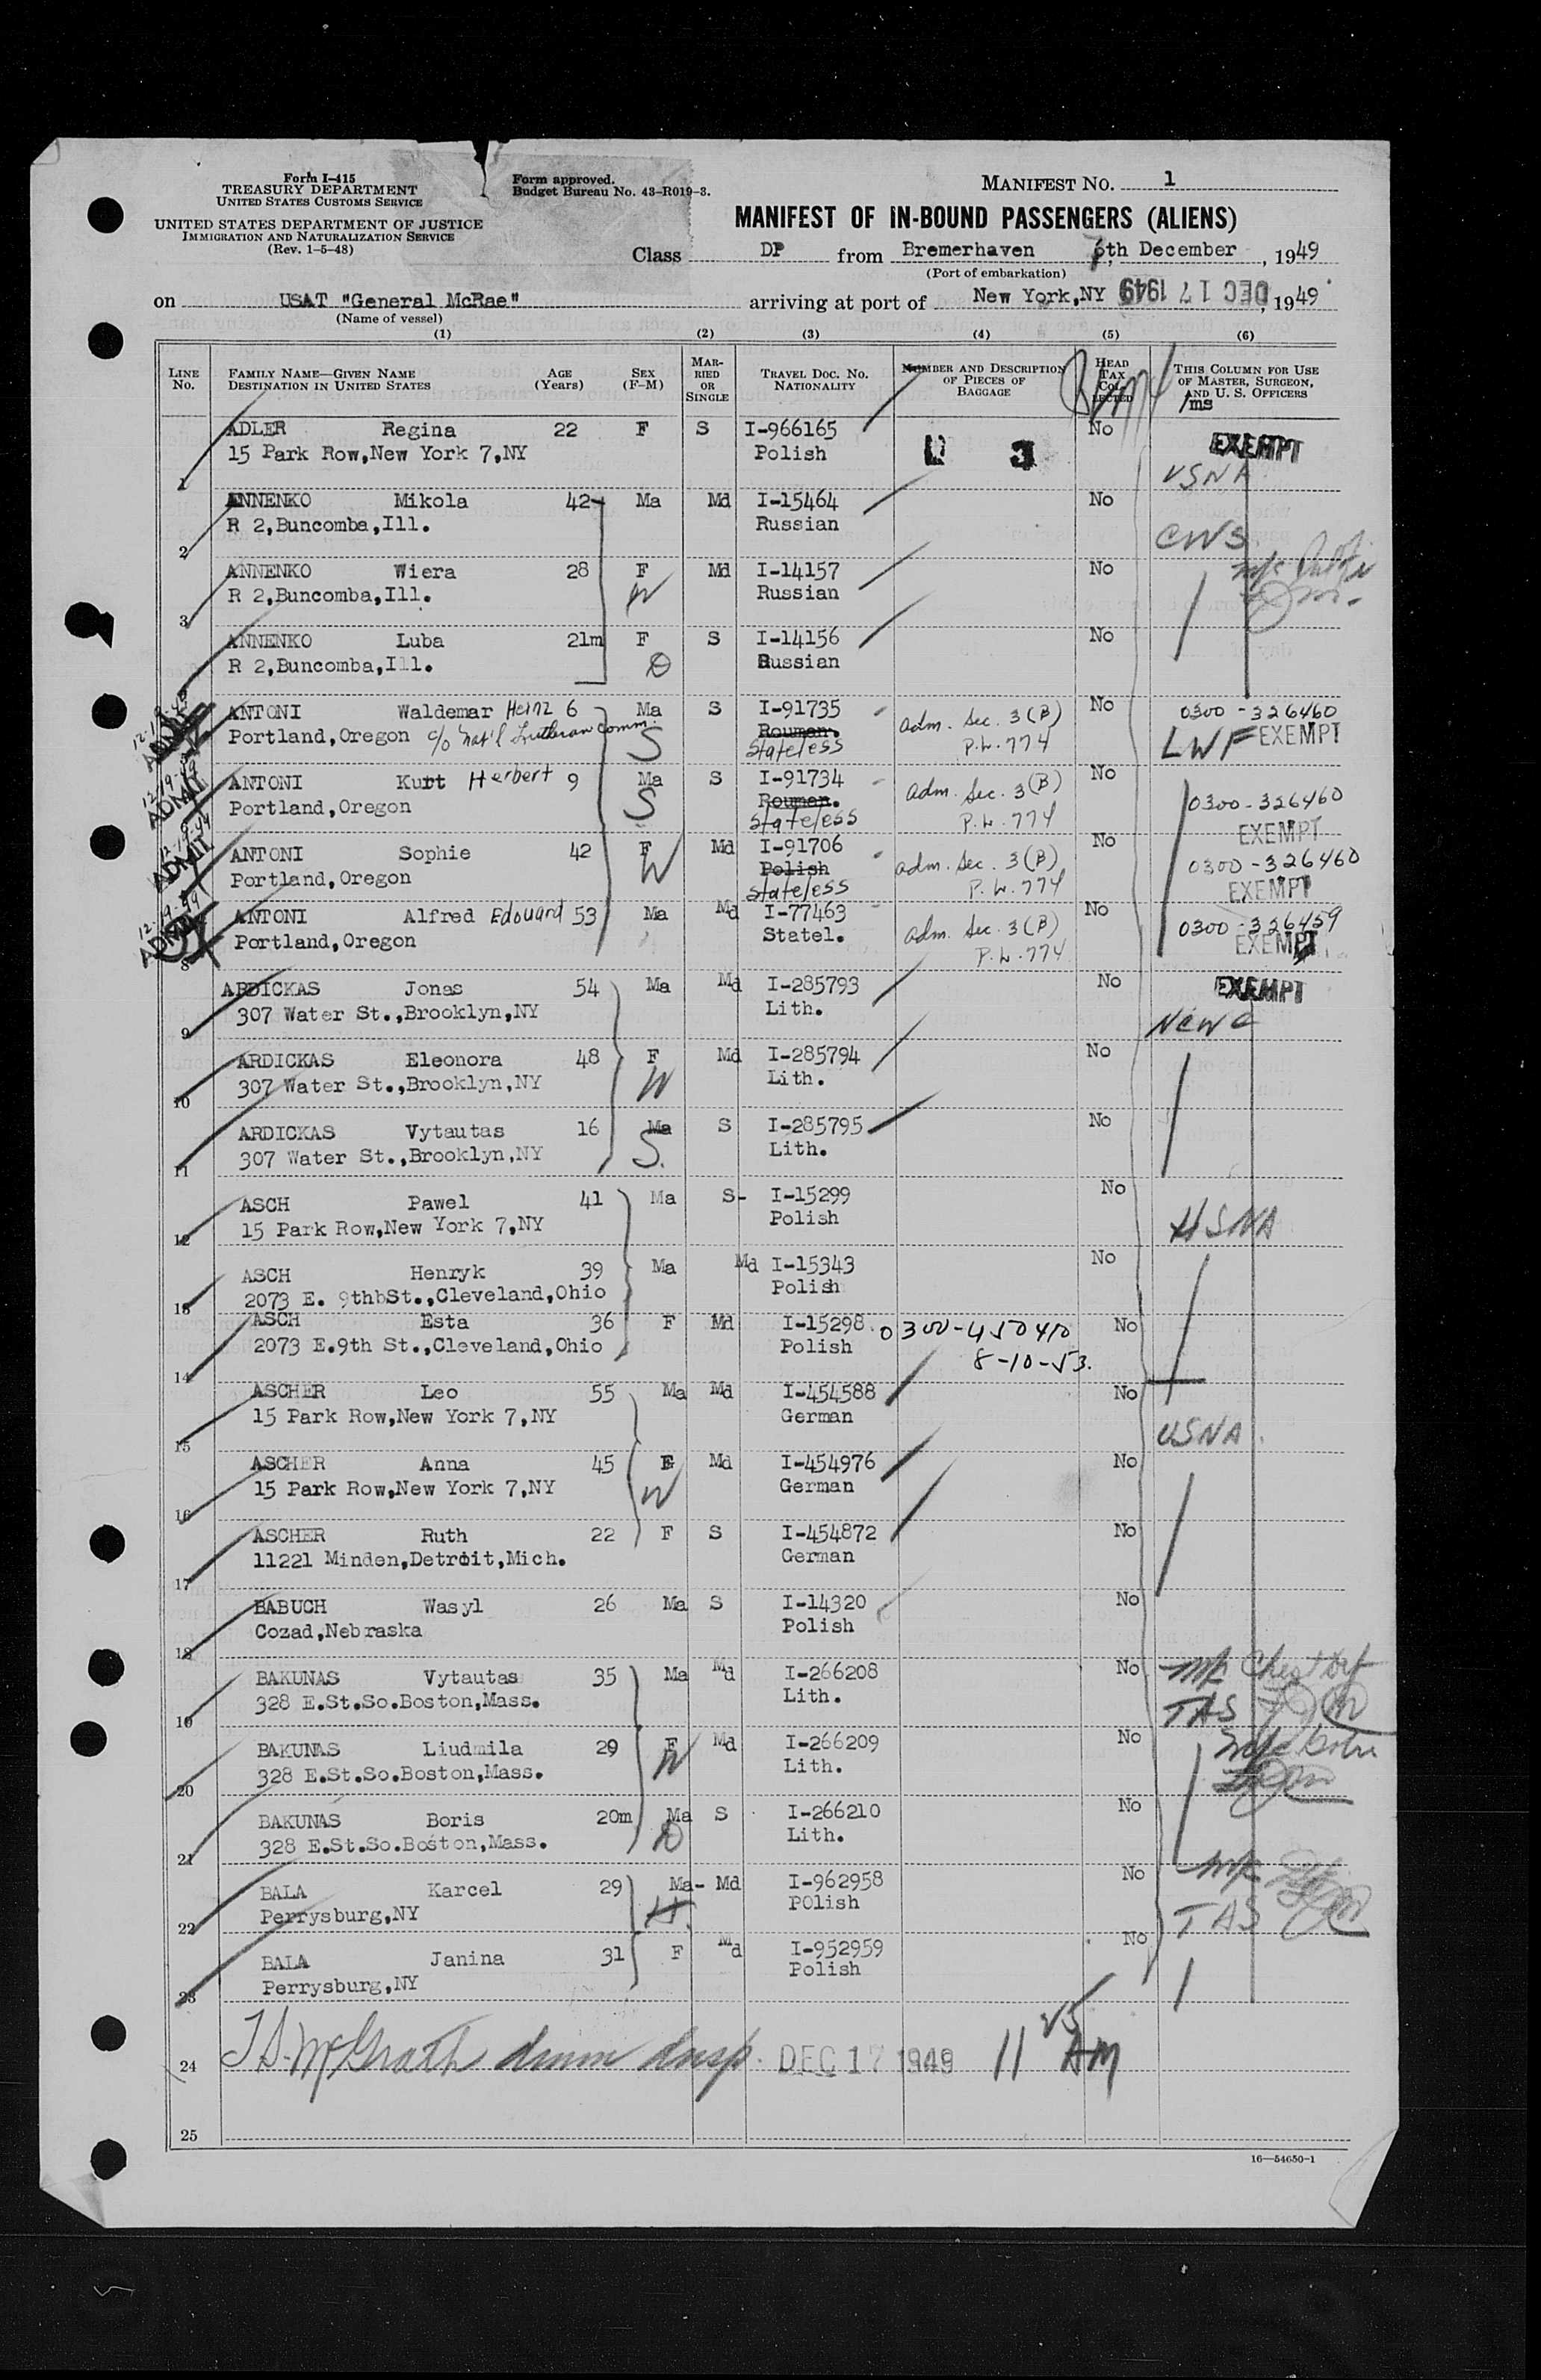 Form I-415
TREASURY DEPARTMENT
UNITED STATES CUSTOMS SERVICE
UNITED STATES DEPARTMENT OF JUSTICE
IMMIGRATION AND NATURALIZATION SERVICE
(Rev. 1-5-48)
Form approved.
Budget Bureau No. 43-R019-3.
MANIFEST NO. 1
MANIFEST OF IN-BOUND PASSENGERS (ALIENS)
Class DP from Bremerhaven th December, 1949
(Port of embarkation)
on USAT "General McRae" arriving at port of New York,NY DEC 17 1949, 1949
(Name of vessel)
(1) (2) (3) (4) (5) (6)
LINE No. FAMILY NAME—GIVEN NAME DESTINATION IN UNITED STATES AGE (Years) SEX (F-M) MARRIED OR SINGLE TRAVEL DOC. NO. NATIONALITY NUMBER AND DESCRIPTION OF PIECES OF BAGGAGE HEAD TAX COLLECTED THIS COLUMN FOR USE OF MASTER, SURGEON, AND U. S. OFFICERS
/ms
ADLER Regina 22 F S I-966165 No EXEMPT
15 Park Row,New York 7,NY Polish 3 USNA
1
ANNENKO Mikola 42 Ma Md I-15464 No
R 2,Buncomba,Ill. Russian CWS
2
ANNENKO Wiera 28 F Md I-14157 No
R 2,Buncomba,Ill. W Russian
3
ANNENKO Luba 21m F S I-14156 No
R 2,Buncomba,Ill. Russian
ANTONI Waldemar Heinz 6 Ma S I-91735 adm. Sec. 3(B) No 0300-326460
Portland,Oregon c/o Nat'l Lutheran Comm. S Rouman. Stateless P.L.774 LWF EXEMPT
12-19-49 ADMIT
ANTONI Kurt Herbert 9 Ma S I-91734 adm. Sec. 3(B) No 0300-326460
Portland,Oregon S Rouman. Stateless P.L.774 EXEMPT
12-19-49 ADMIT
ANTONI Sophie 42 F Md I-91706 adm. Sec. 3(B) No 0300-326460
Portland,Oregon W Polish Stateless P.L.774 EXEMPT
12-19-49 ADMIT
ANTONI Alfred Edouard 53 Ma Md I-77463 adm. Sec. 3(B) No 0300-326459
Portland,Oregon Statel. P.L.774 EXEMPT
8
ARDICKAS Jonas 54 Ma Md I-285793 No EXEMPT
307 Water St.,Brooklyn,NY Lith. NCWC
9
ARDICKAS Eleonora 48 F Md I-285794 No
307 Water St.,Brooklyn,NY W Lith.
10
ARDICKAS Vytautas 16 Ma S I-285795 No
307 Water St.,Brooklyn,NY S. Lith.
11
ASCH Pawel 41 Ma S- I-15299 No
15 Park Row,New York 7,NY Polish USNA
12
ASCH Henryk 39 Ma Md I-15343 No
2073 E. 9thbSt.,Cleveland,Ohio Polish
13
ASCH Esta 36 F Md I-15298 0300-450410 No
2073 E.9th St.,Cleveland,Ohio Polish 8-10-53.
14
ASCHER Leo 55 Ma Md I-454588 No
15 Park Row,New York 7,NY German USNA
15
ASCHER Anna 45 F Md I-454976 No
15 Park Row,New York 7,NY W German
16
ASCHER Ruth 22 F S I-454872 No
11221 Minden,Detroit,Mich. German
17
BABUCH Wasyl 26 Ma S I-14320 No
Cozad,Nebraska Polish
18
BAKUNAS Vytautas 35 Ma Md I-266208 No
328 E.St.So.Boston,Mass. Lith. TAS
19
BAKUNAS Liudmila 29 F Md I-266209 No
328 E.St.So.Boston,Mass. W Lith.
20
BAKUNAS Boris 20m Ma S I-266210 No
328 E.St.So.Boston,Mass. D Lith.
21
BALA Karcel 29 Ma- Md I-962958 No
Perrysburg,NY H. POlish TAS
22
BALA Janina 31 F Md I-952959 No
Perrysburg,NY Polish
23
24 McGrath DEC 17 1949 11 25 AM
25
16—54650-1